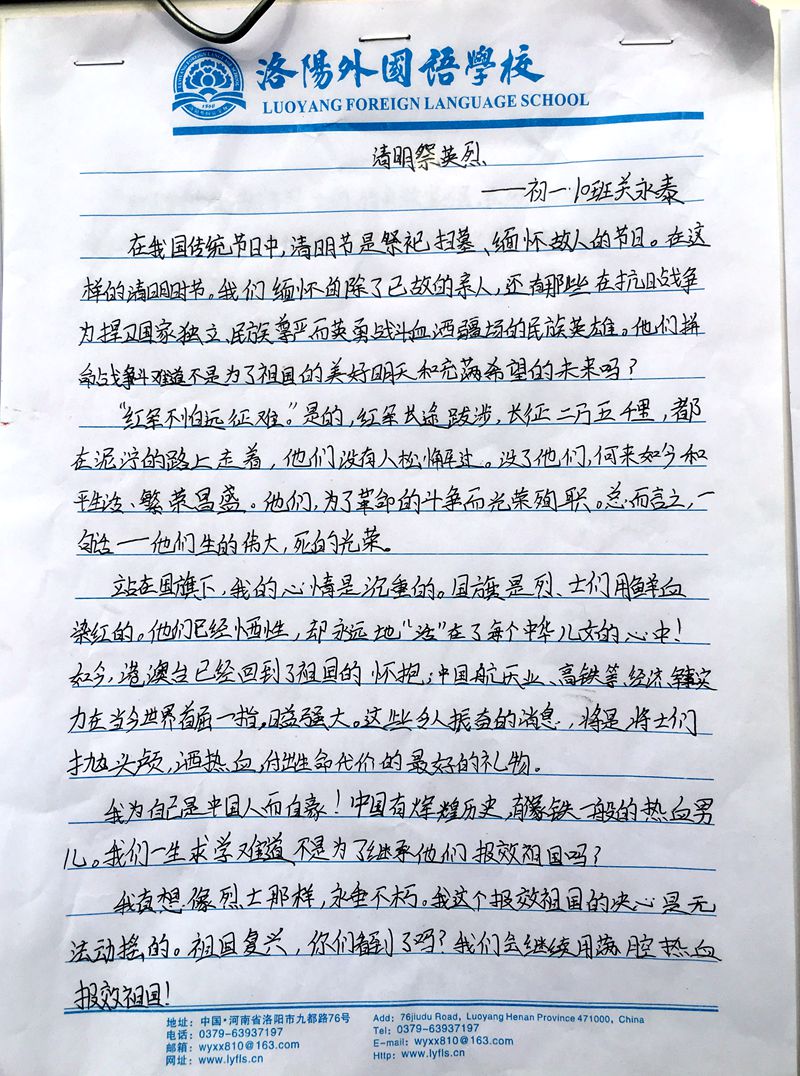 洛陽外國語學校
LUOYANG FOREIGN LANGUAGE SCHOOL
清明祭英烈
——初一·10班关永泰
在我国传统节日中,清明节是祭祀、扫墓、缅怀故人的节日。在这
样的清明时节。我们缅怀的除了已故的亲人,还有那些在抗日战争
为捍卫国家独立、民族尊严而英勇战斗血洒疆场的民族英雄。他们拼
命战争斗难道不是为了祖国的美好明天和充满希望的未来吗?
“红军不怕远征难。”是的,红军长途跋涉,长征二万五千里,都
在泥泞的路上走着,他们没有人松懈过。没了他们,何来如今和
平生活、繁荣昌盛。他们,为了革命的斗争而光荣殉职。总而言之,一
句话——他们生的伟大,死的光荣。
站在国旗下,我的心情是沉重的。国旗是烈、士们用鲜血
染红的。他们已经牺牲,却永远地“活”在了每个中华儿女的心中!
如今,港澳台已经回到了祖国的怀抱;中国航天业、高铁等、经济、实
力在当今世界首屈一指,日益强大。这些令人振奋的消息,将是将士们
抛头颅,洒热血,付出生命代价的最好的礼物。
我为自己是中国人而自豪!中国有辉煌历史,有像铁一般的热血男
儿。我们一生求学难道不是为了继承他们报效祖国吗?
我真想像烈士那样,永垂不朽。我这个报效祖国的决心是无
法动摇的。祖国复兴,你们看到了吗?我们会继续用满腔热血
报效祖国!
地址:中国·河南省洛阳市九都路76号
电话:0379-63937197
邮箱:wyxx810@163.com
网址:www.lyfls.cn
Add: 76jiudu Road, Luoyang Henan Province 471000, China
Tel: 0379-63937197
E-mail: wyxx810@163.com
Http: www.lyfls.cn